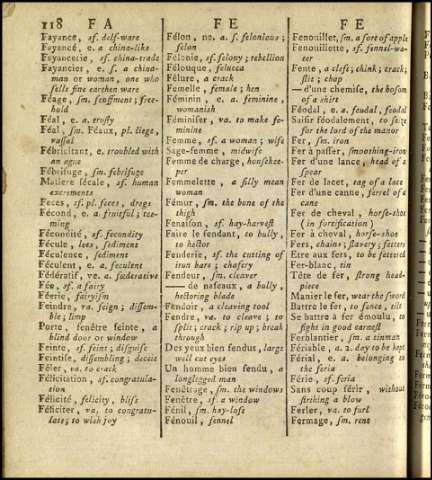 118 F A
F E
F E
Fayance, sf. delf-ware
Fayancé, e. a china-like
Fayancerie, sf. china-trade
Fayancier, e. f. a china-
man or woman, one who
sells fine earthen ware
Féage, ſm. feoffment; free-
hold
Féal, e. a. truſty
Féal, ſm. Féaux, pl. liege,
vaſſal
Fébricitant, e. troubled with
an ague
Fébrifuge, ſm. febrifuge
Matiere fécale, sf. human
excrements
Feces, sf. pl. feces, dregs
Fécond, e. a. fruitful; tee-
ming
Fécondité, sf. fecundity
Fécule, lees, ſediment
Féculence, ſediment
Féculent, e. a. feculent
Fédératif, ve. a. fœderative
Fée, sf. a fairy
Féerie, fairyiſm
Feindre, va. feign; diſſem-
ble; limp
Porte, fenêtre feinte, a
blind door or window
Feinte, sf. feint; diſguiſe
Feintiſe, diſſembling; deceit
Fêler, va. to crack
Félicitation, sf. congratula-
tion
Félicité, felicity, bliſs
Féliciter, va. to congratu-
late; to wish joy
Félon, ne. a. ſ. felonious;
felon
Felonie, sf. felony; rebellion
Félouque, felucca
Fêlure, a crack
Femelle, female; hen
Féminin, e. a. feminine,
womanish
Féminiſer, va. to make fe-
minine
Femme, sf. a woman; wife
Sage-femme, midwife
Femme de charge, houſekee-
per
Femmelette, a ſilly mean
woman
Fémur, ſm. the bone of the
thigh
Fenaiſon, sf. hay-harveſt
Faire le fendant, to bully,
to hector
Fenderie, sf. the cutting of
iron bars; chafery
Fendeur, ſm. cleaver
—— de naſeaux, a bully,
hectoring blade
Fendoir, a cleaving tool
Fendre, va. to cleave; to
ſplit; crack; rip up; break
through
Des yeux bien fendus, large
well cut eyes
Un homme bien fendu, a
longlegged man
Fenêtrage, ſm. the windows
Fenêtre, sf. a window
Fénil, ſm. hay-loft
Fénouil, fennel
Fenouillet, ſm. a ſort of apple
Fenouillette, sf. fennel-wa-
ter
Fente, a cleft; chink; crack;
ſlit; chap
— d'une chemiſe, the boſom
of a shirt
Féodal, e. a. feudal, feodal
Saiſir féodalement, to ſeize
for the lord of the manor
Fer, ſm. iron
Fer à paſſer, ſmoothing-iron
Fer d'une lance, head of a
ſpear
Fer de lacet, tag of a lace
Fer d'une canne, ferrel of a
cane
Fer de cheval, horſe-shoe
(in fortification)
Fer à cheval, horſe-shoe
Fers, chains; ſlavery; fetters
Etre aux fers, to be fettered
Fer-blanc, tin
Tête de fer, ſtrong head-
piece
Manier le fer, wear the ſword
Battre le fer, to fence, tilt
Se battre à fer émoulu, to
fight in good earneſt
Ferblantier, ſm. a tinman
Fériable, a. a. day to be kept
Férial, e. a. belonging to
the feria
Férie, sf. feria
Sans coup férir, without
ſtriking a blow
Ferler, va. to furl
Fermage, ſm. rent